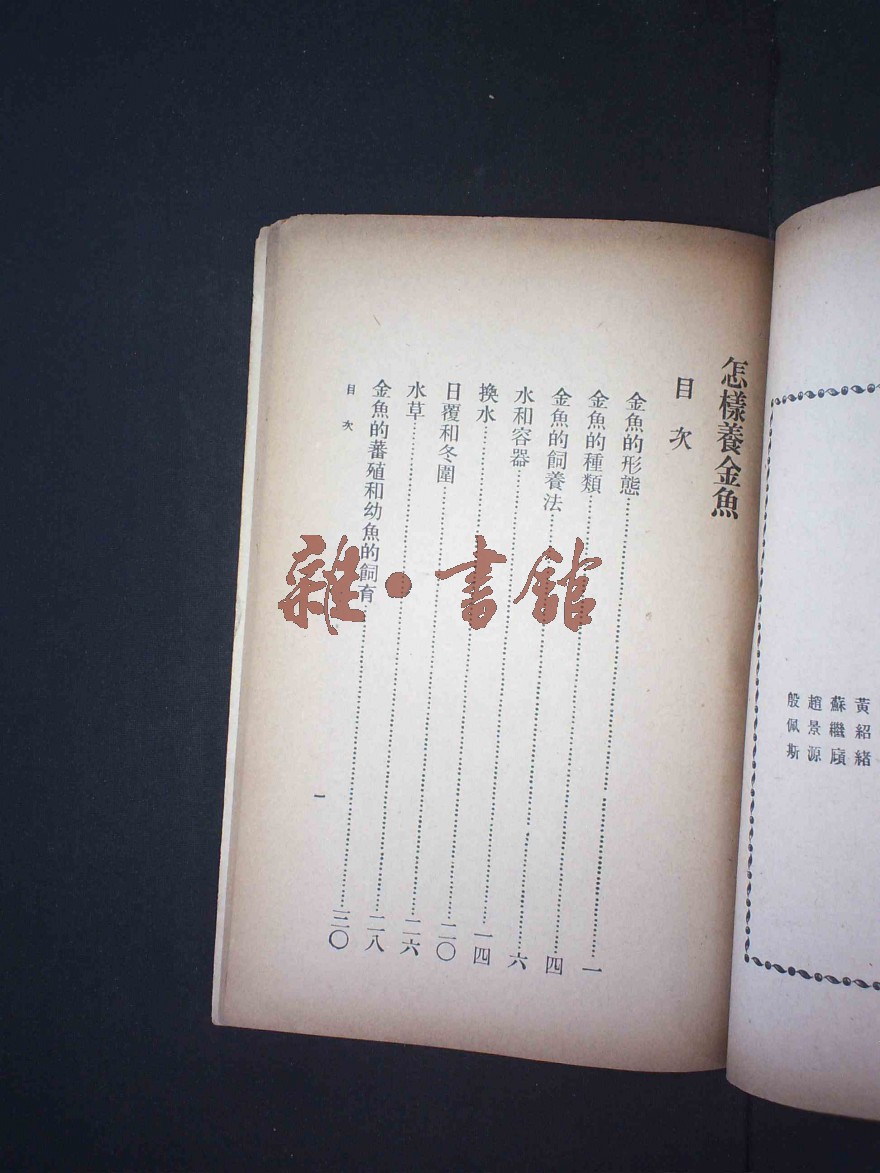 黃紹緒
蘇繼廎
趙景源
殷佩斯
怎樣養金魚
目次
金魚的形態……一
金魚的種類……四
金魚的飼養法……六
水和容器……一四
換水……二〇
日覆和冬圍……二六
水草……二八
金魚的蕃殖和幼魚的飼育……三〇
目次
一
雜·書館